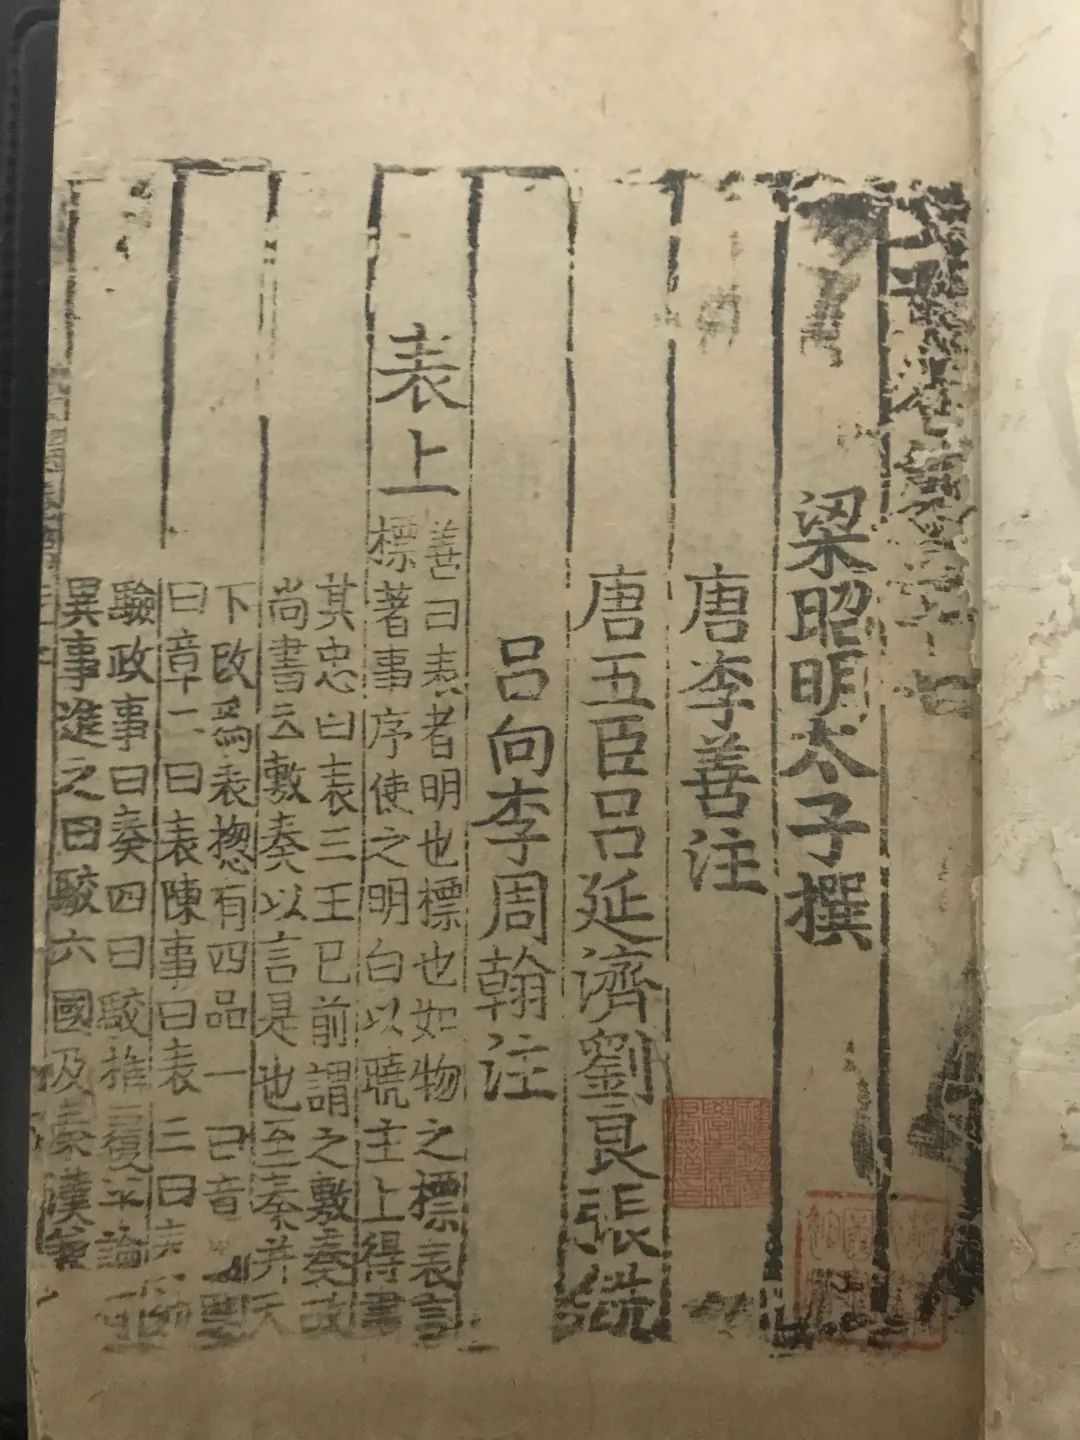 梁昭明太子撰
唐李善注
唐五臣呂延濟劉良張銑
呂向李周翰注
表上
善曰表者明也標也如物之標表言
標著事序使之明白以曉主上得盡
其忠曰表三王已前謂之敷奏故
尚書云敷奏以言是也至秦并天
下改爲表揔有四品一曰章
曰章二曰表陳事曰表三曰
驗政事曰奏四曰駮推覆平論
異事進之曰駮六國及秦漢兼